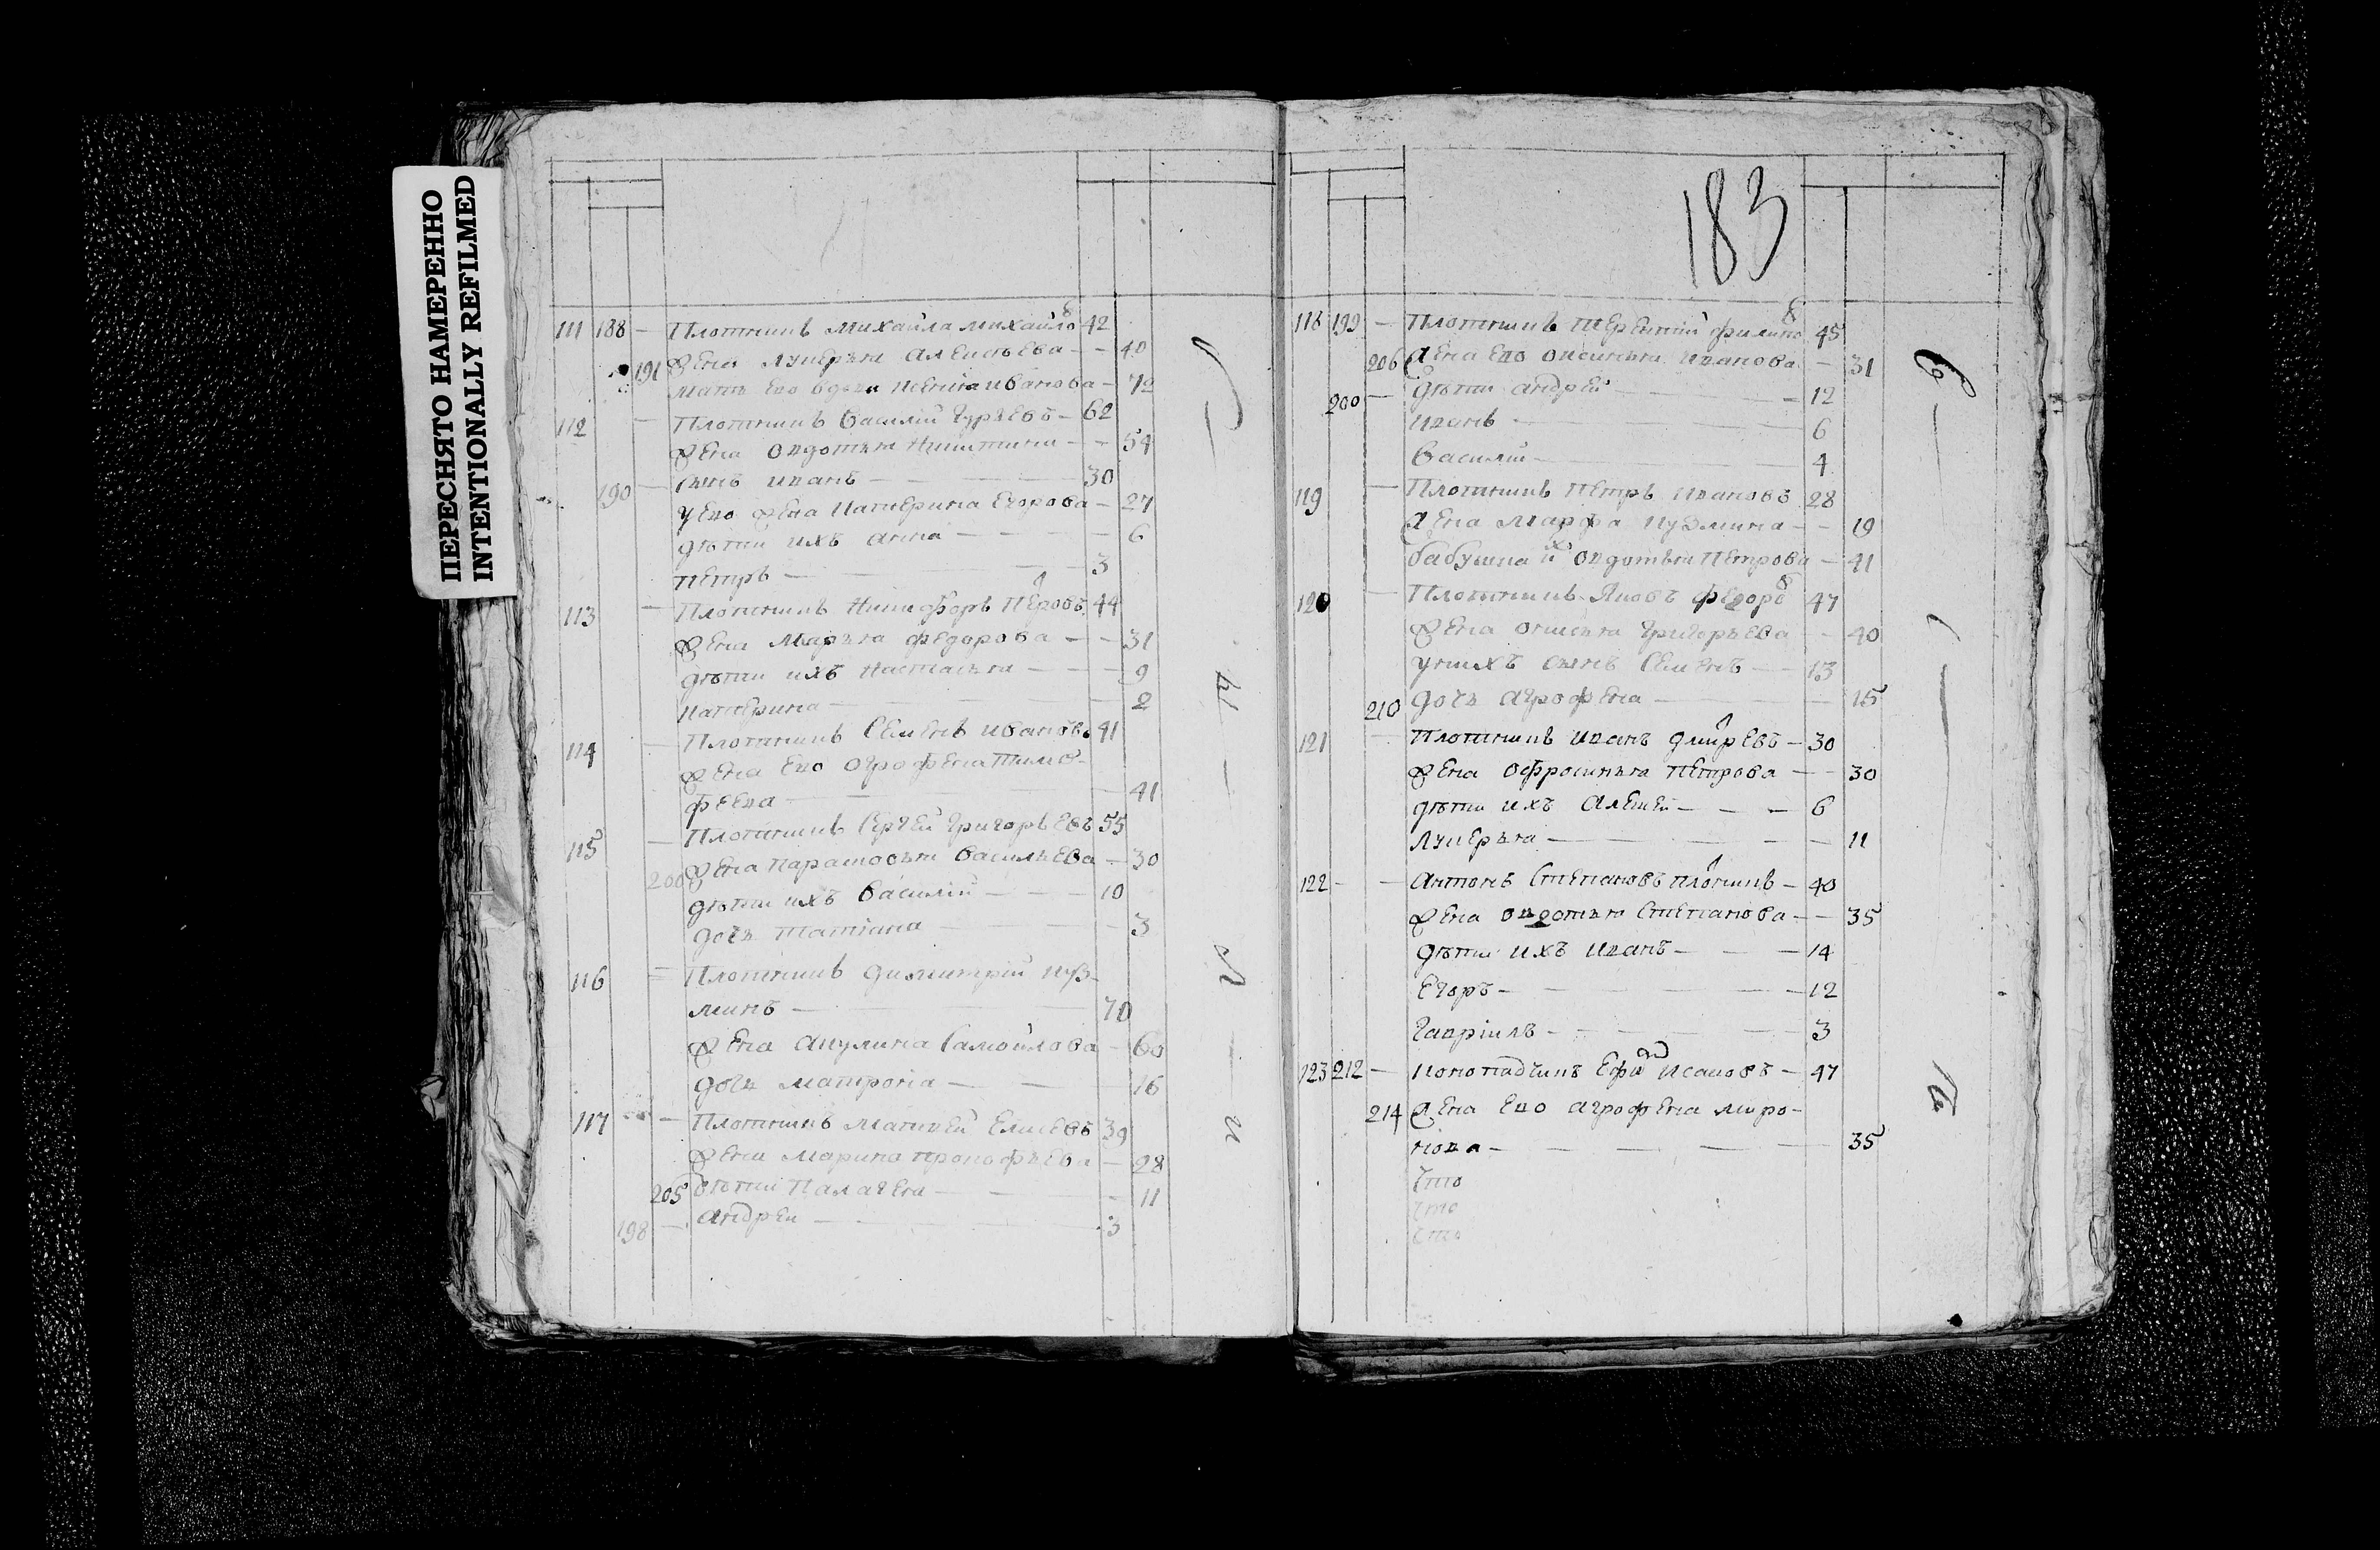 ПЕРЕСНЯТО НАМЕРЕННО
INTENTIONALLY REFILMED
111 188 — Плотникъ Михайла Михайловъ 42
191 жена Лукерья Алексѣева — 40
мать ево вдова Ксенiя Иванова — 72
112 — Плотникъ Василiй Гурьевъ — 62
жена Овдотья Никитина — 54
190 — сынъ Иванъ — 30
у ево жена Катерина Егорова — 27
дѣти ихъ Анна — 6
Петръ — 3
113 — Плотникъ Никифоръ Пе͛ровъ 44
жена Марья Федорова — 31
дѣти ихъ Настасья — 9
Катерина — 2
114 — Плотникъ Семенъ Ивановъ 41
жена ево Огрофена Тимо-
феева — 41
115 — Плотникъ Сергей Григорьевъ 55
200 жена Парасковья Васильева — 30
дѣти ихъ Василiй — 10
дочь Татiана — 3
116 — Плотникъ Димитрiй Куз-
минъ — 70
жена Акулина Самойлова — 60
дочь Матрона — 16
117 — Плотникъ Матвей Елисевъ 39
жена Марина Прокофьева — 28
205 дѣти Палагея — 11
198 — Андрей — 3
С
ч
л
и
183
118 199 — Плотникъ Терентiй Филипов 45
206 жена ево Оксинья Иванова — 31
200 — дѣти Андрей — 12
Иванъ — 6
Василiй — 4
119 — Плотникъ Петръ Ивановъ 28
жена Марфа Кузмина — 19
бабушка их Овдотья Петрова — 41
120 — Плотникъ Яковъ Федоровъ 47
жена Онисья Григорьева — 40
у нихъ сынъ Семенъ — 13
210 дочь Агрофена — 15
121 — Плотникъ Иванъ Дмиреевъ — 30
жена Офросинья Петрова — 30
дѣти ихъ Алексей — 6
Лукерья — 11
122 — Антонъ Степановъ плотникъ — 40
жена Овдотья Степанова — 35
дѣти ихъ Иванъ — 14
Егоръ — 12
Гаврiилъ — 3
123 212 — Конопадчикъ Ефим Исаковъ — 47
214 жена ево Агрофена Миро-
нова — 35
Что
Что
Что